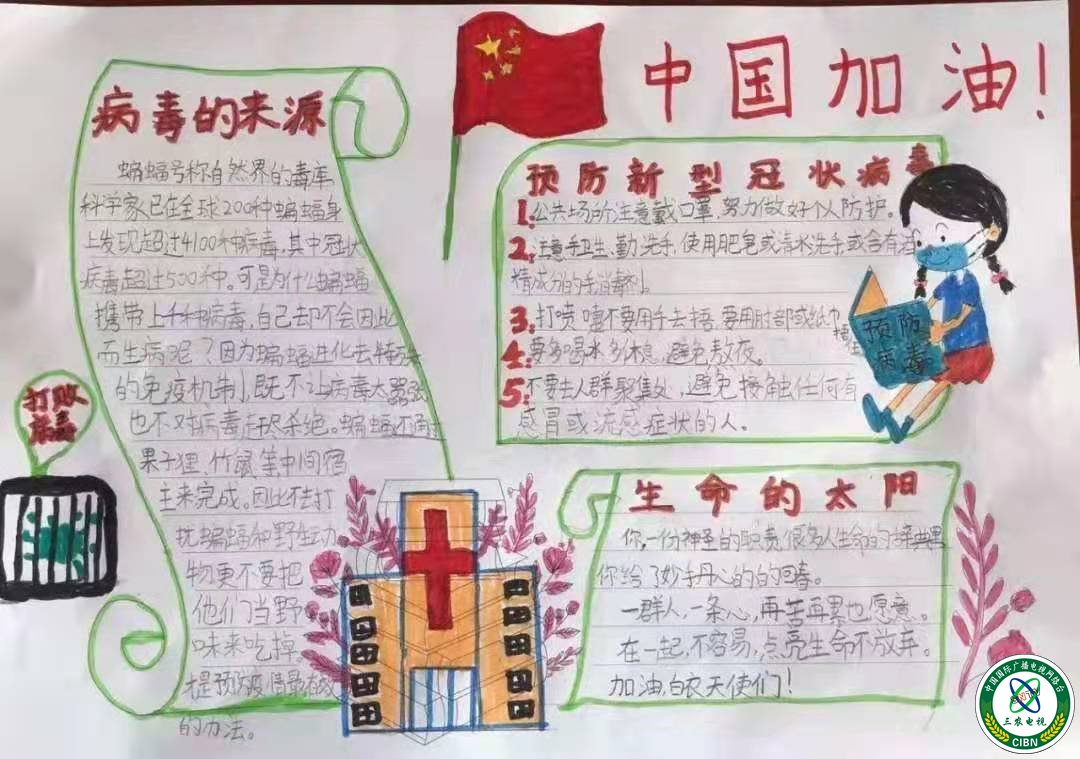 中国加油！
病毒的来源
蝙蝠号称自然界的毒库
科学家已在全球200种蝙蝠身
上发现超过4100种病毒,其中冠状
病毒超过500种。可是为什么蝙蝠
携带上千种病毒,自己却不会因此
而生病呢？因为蝙蝠进化去特殊
的免疫机制,既不让病毒太嚣张
也不对病毒赶尽杀绝。蝙蝠不
果子狸、竹鼠等中间宿
主来完成。因此不去打
扰蝙蝠和野生动
物更不要把
他们当野
味来吃掉
才是预防疫情最
的办法。
打败
病毒
预防新型冠状病毒
1.公共场所注意戴口罩,努力做好个人防护。
2.注意手卫生、勤洗手,使用肥皂或清水洗手,或含有酒
精成分的手消毒剂。
3.打喷嚏不要用手去捂,要用肘部或纸巾
4.要多喝水多休息,避免熬夜。
5.不要去人群聚集处，避免接触任何有
感冒或流感症状的人。
预防
病毒
生命的太阳
你,一份神圣的职责,很多人生命的
你给了妙手丹心的的回春。
一群人,一条心,再苦再累也愿意。
在一起,不容易,点亮生命不放弃。
加油,白衣天使们！
中国国际广播电视网络台
三农电视
CIBN